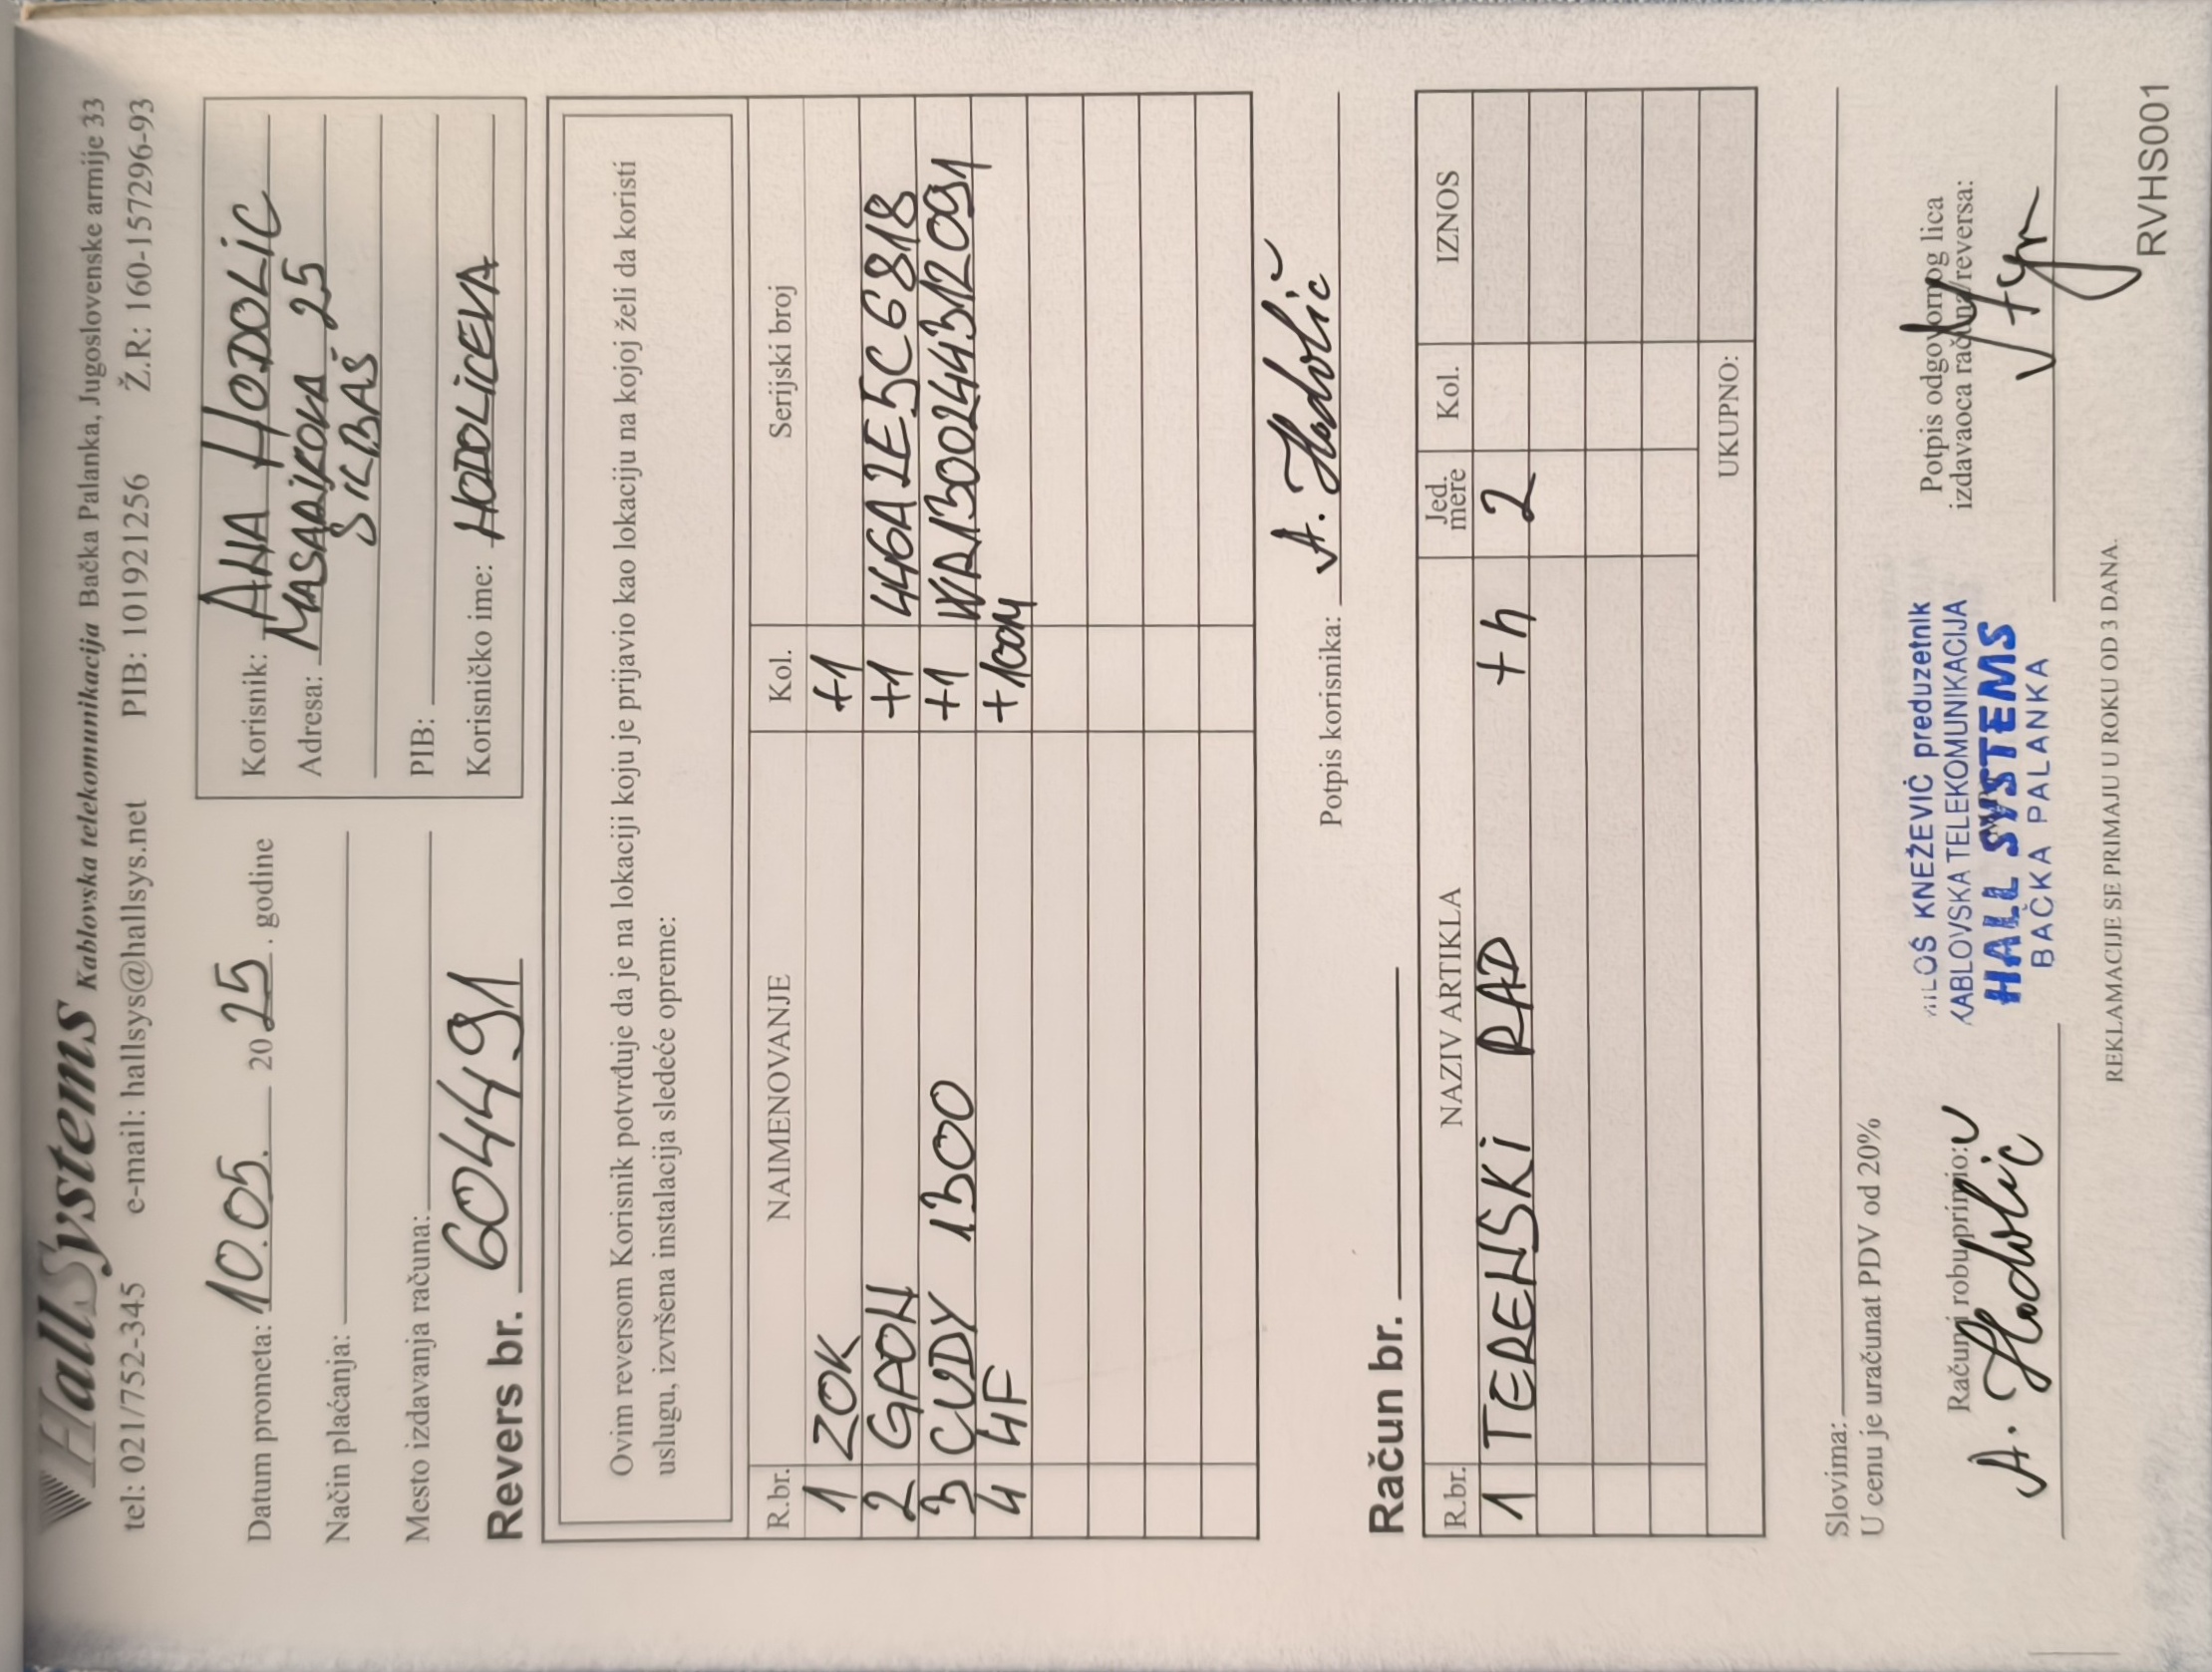 HallSystems Kablovska telekomunikacija Bačka Palanka, Jugoslovenske armije 33
tel: 021/752-345 e-mail: hallsys@hallsys.net PIB: 101921256 Ž.R: 160-157296-93
Datum prometa: 10.05. 2025. godine
Način plaćanja:
Mesto izdavanja računa:
Revers br. 604491
Korisnik: ANA HODOLIC
Adresa: MASARIKOVA 25
SILBAŠ
PIB:
Korisničko ime: HODOLICEVA
Ovim reversom Korisnik potvrđuje da je na lokaciji koju je prijavio kao lokaciju na kojoj želi da koristi
uslugu, izvršena instalacija sledeće opreme:
R.br. NAIMENOVANJE Kol. Serijski broj
1 ZOK +1
2 GPON +1 446A2E5C6818
3 CUDY 1300 +1 WR1300244312091
4 4F +100M
Potpis korisnika: A. Hodolič
Račun br.
R.br. NAZIV ARTIKLA Jed. mere Kol. IZNOS
1 TERENSKI RAD +h 2
UKUPNO:
Slovima:
U cenu je uračunat PDV od 20%
Račun i robu primio:
A. Hodolič
MILOŠ KNEŽEVIĆ preduzetnik
KABLOVSKA TELEKOMUNIKACIJA
HALL SYSTEMS
BAČKA PALANKA
Potpis odgovornog lica
izdavaoca računa/reversa:
REKLAMACIJE SE PRIMAJU U ROKU OD 3 DANA.
RVHS001